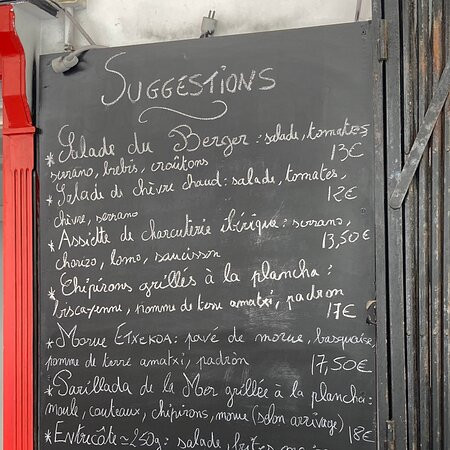 SUGGESTIONS
* Salade du Berger : salade, tomates
serrano, brebis, croûtons 13€
* Salade de chèvre chaud : salade, tomates,
chèvre, serrano 12€
* Assiette de charcuterie ibérique : serrano,
chorizo, lomo, saucisson 13,50€
* Chipirons grillés à la plancha :
biscayenne, pomme de terre amatxi, padron
17€
* MORUE ETXEKOA : pavé de morue, basquaise,
pomme de terre amatxi, padròn 17,50€
* Parillada de la Mer grillée à la plancha :
moule, couteaux, chipirons, morue (selon arrivage) 18€
* Entrecôte ≃ 250g : salade, frites